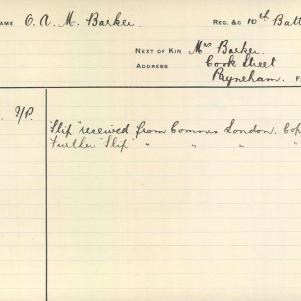 NAME O. A. M. Barker. REG. &C 10th Batt
NEXT OF KIN Mrs Barker.
ADDRESS Cook Street
Payneham. F
I/P. "Slip" received from Commns London. Cop
Further "Slip" " " " "